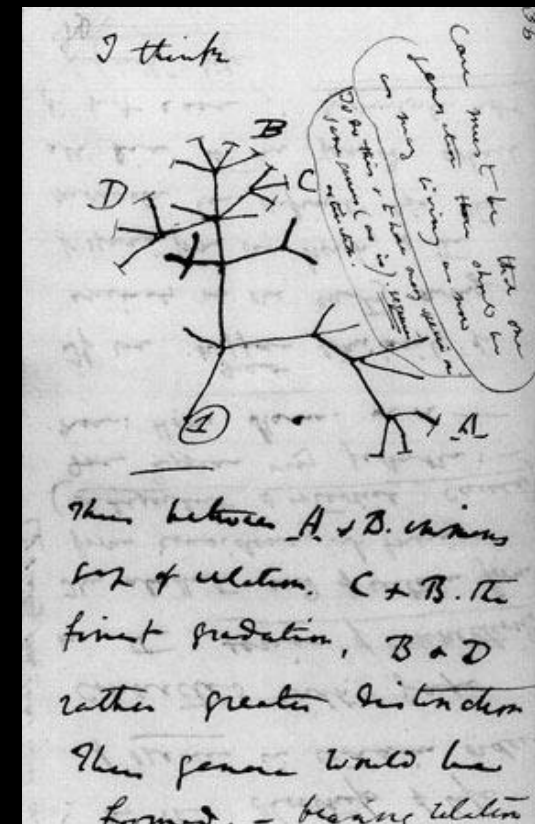 I think
Case must be that one
generation then should be
as many living as now
To do this & to have many species in
same genus (as is). requires
extinction.
B
C
D
A
1
Thus between A & B. immens
gap of relation. C & B. the
finest gradation, B & D
rather greater distinction
Thus genera would be
formed. — bearing relation
36